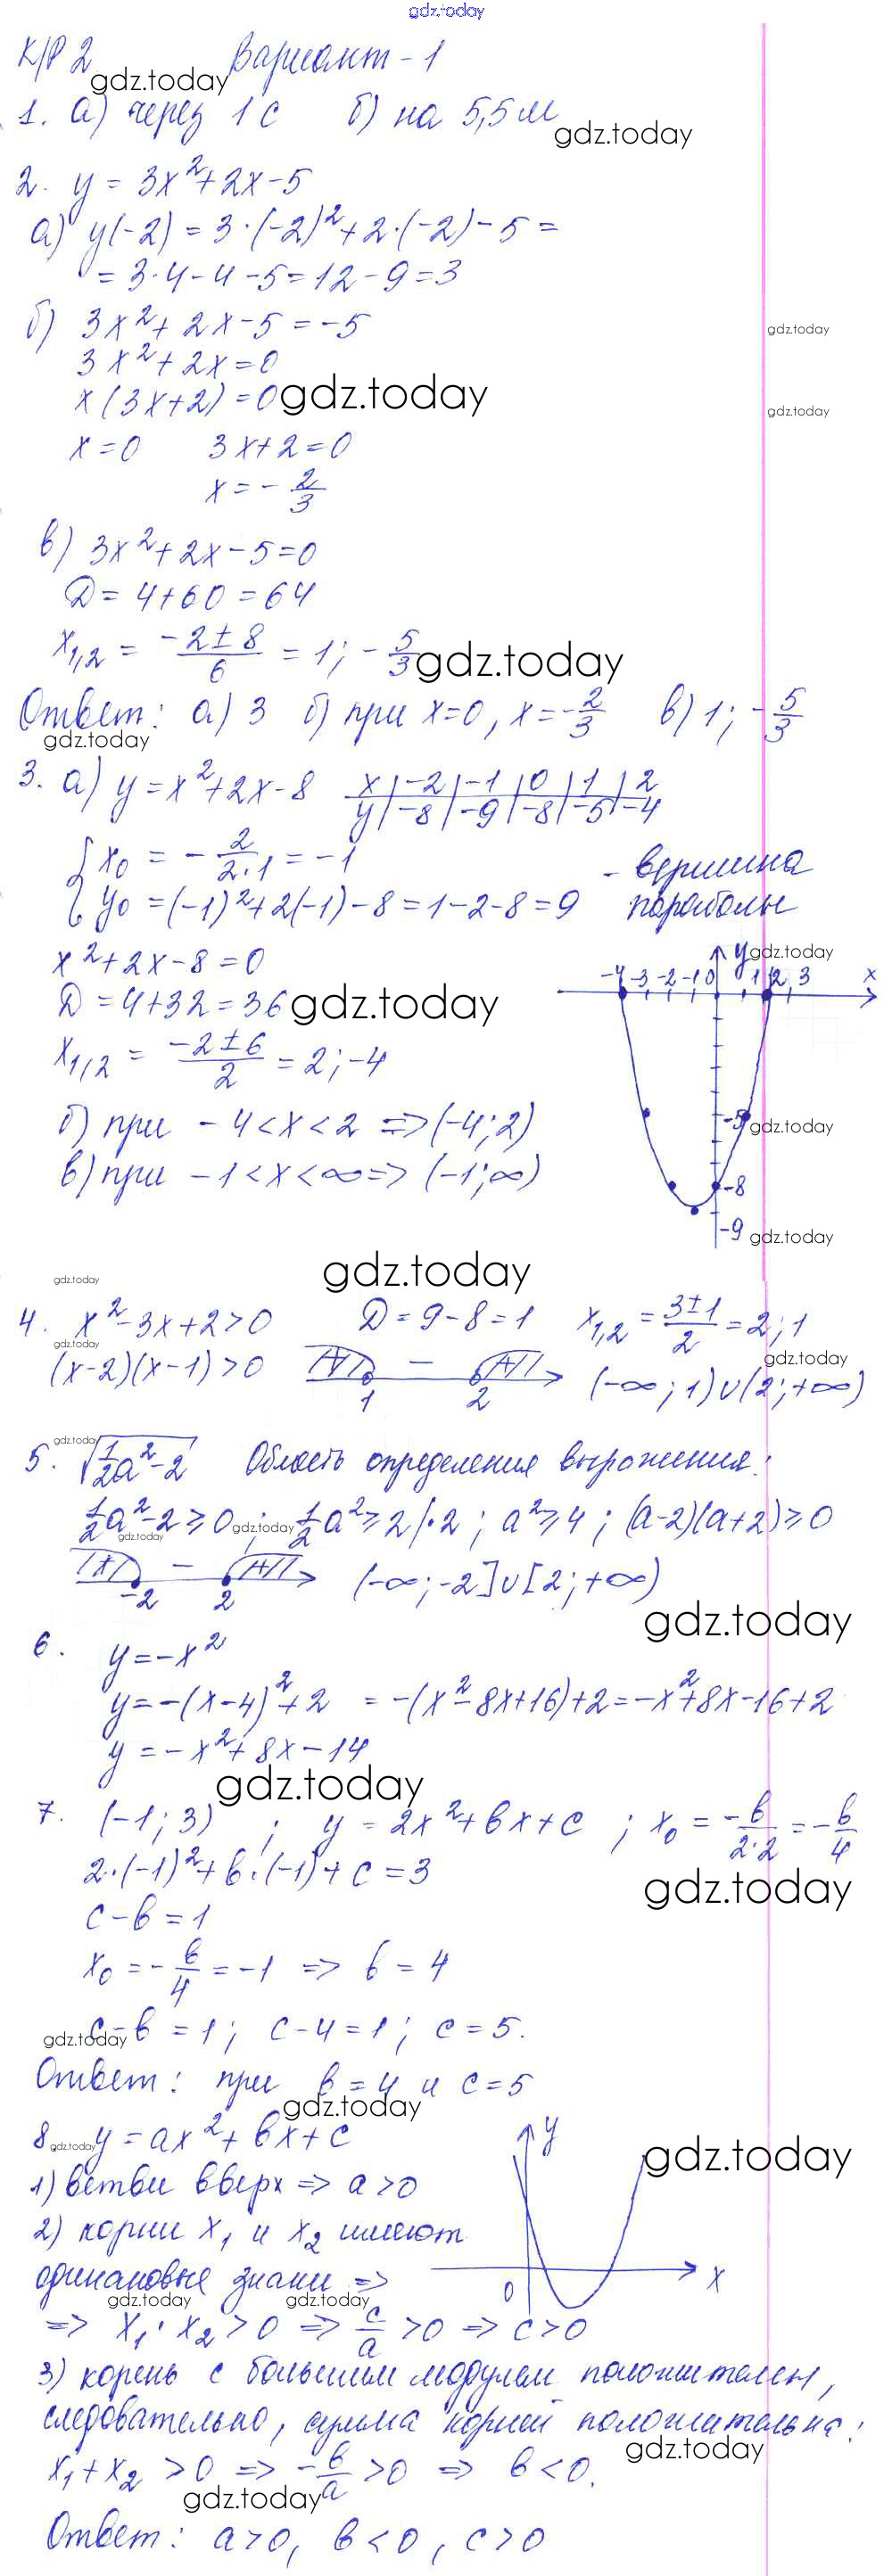 gdz.today
К/Р 2 Вариант - 1
gdz.today
1. а) через 1 с б) на 5,5 м
gdz.today
2. y = 3x²+2x-5
а) y(-2) = 3·(-2)²+2·(-2)-5 =
= 3·4-4-5=12-9=3
б) 3x²+2x-5=-5
gdz.today
3x²+2x=0
x(3x+2)=0 gdz.today
gdz.today
x=0 3x+2=0
x=-2/3
в) 3x²+2x-5=0
D=4+60=64
x₁,₂ = (-2±8)/6 = 1; -5/3 gdz.today
Ответ: а) 3 б) при x=0, x=-2/3 в) 1; -5/3
gdz.today
3. а) y=x²+2x-8 x | -2 | -1 | 0 | 1 | 2
y | -8 | -9 | -8 | -5 | -4
{ x₀ = -2/(2·1) = -1 - вершина
y₀ = (-1)²+2(-1)-8=1-2-8=9 параболы
x²+2x-8=0 y gdz.today
-4 -3 -2 -1 0 1 2 3 x
D=4+32=36 gdz.today
x₁,₂ = (-2±6)/2 = 2; -4
б) при -4<x<2 => (-4;2) -5 gdz.today
в) при -1<x<∞ => (-1;∞) -8
-9 gdz.today
gdz.today gdz.today
4. x²-3x+2>0 D=9-8=1 x₁,₂ = (3±1)/2 = 2; 1
gdz.today gdz.today
(x-2)(x-1)>0 + − + (-∞; 1)∪(2; +∞)
1 2
gdz.today
5. √(1/2a²-2) Область определения выражения:
1/2a²-2⩾0 gdz.today; 1/2a²⩾2 |·2; a²⩾4; (a-2)(a+2)⩾0
gdz.today
+ − + (-∞; -2]∪[2; +∞)
-2 2
gdz.today
6. y=-x²
y=-(x-4)²+2 = -(x²-8x+16)+2=-x²+8x-16+2
y=-x²+8x-14
gdz.today
7. (-1; 3) ; y=2x²+bx+c ; x₀ = -b/(2·2) = -b/4
2·(-1)²+b·(-1)+c=3
gdz.today
c-b=1
x₀=-b/4=-1 => b=4
gdz.today c-b=1; c-4=1; c=5.
Ответ: при b=4 и c=5
gdz.today
8 gdz.today y=ax²+bx+c y
gdz.today
1) ветви вверх => a>0
2) корни x₁ и x₂ имеют
одинаковые знаки => 0 x
gdz.today gdz.today
=> x₁·x₂>0 => c/a>0 => c>0
3) корень с большим модулем положителен,
следовательно, сумма корней положительна:
gdz.today
x₁+x₂>0 => -b/a>0 => b<0.
gdz.today
Ответ: a>0, b<0, c>0